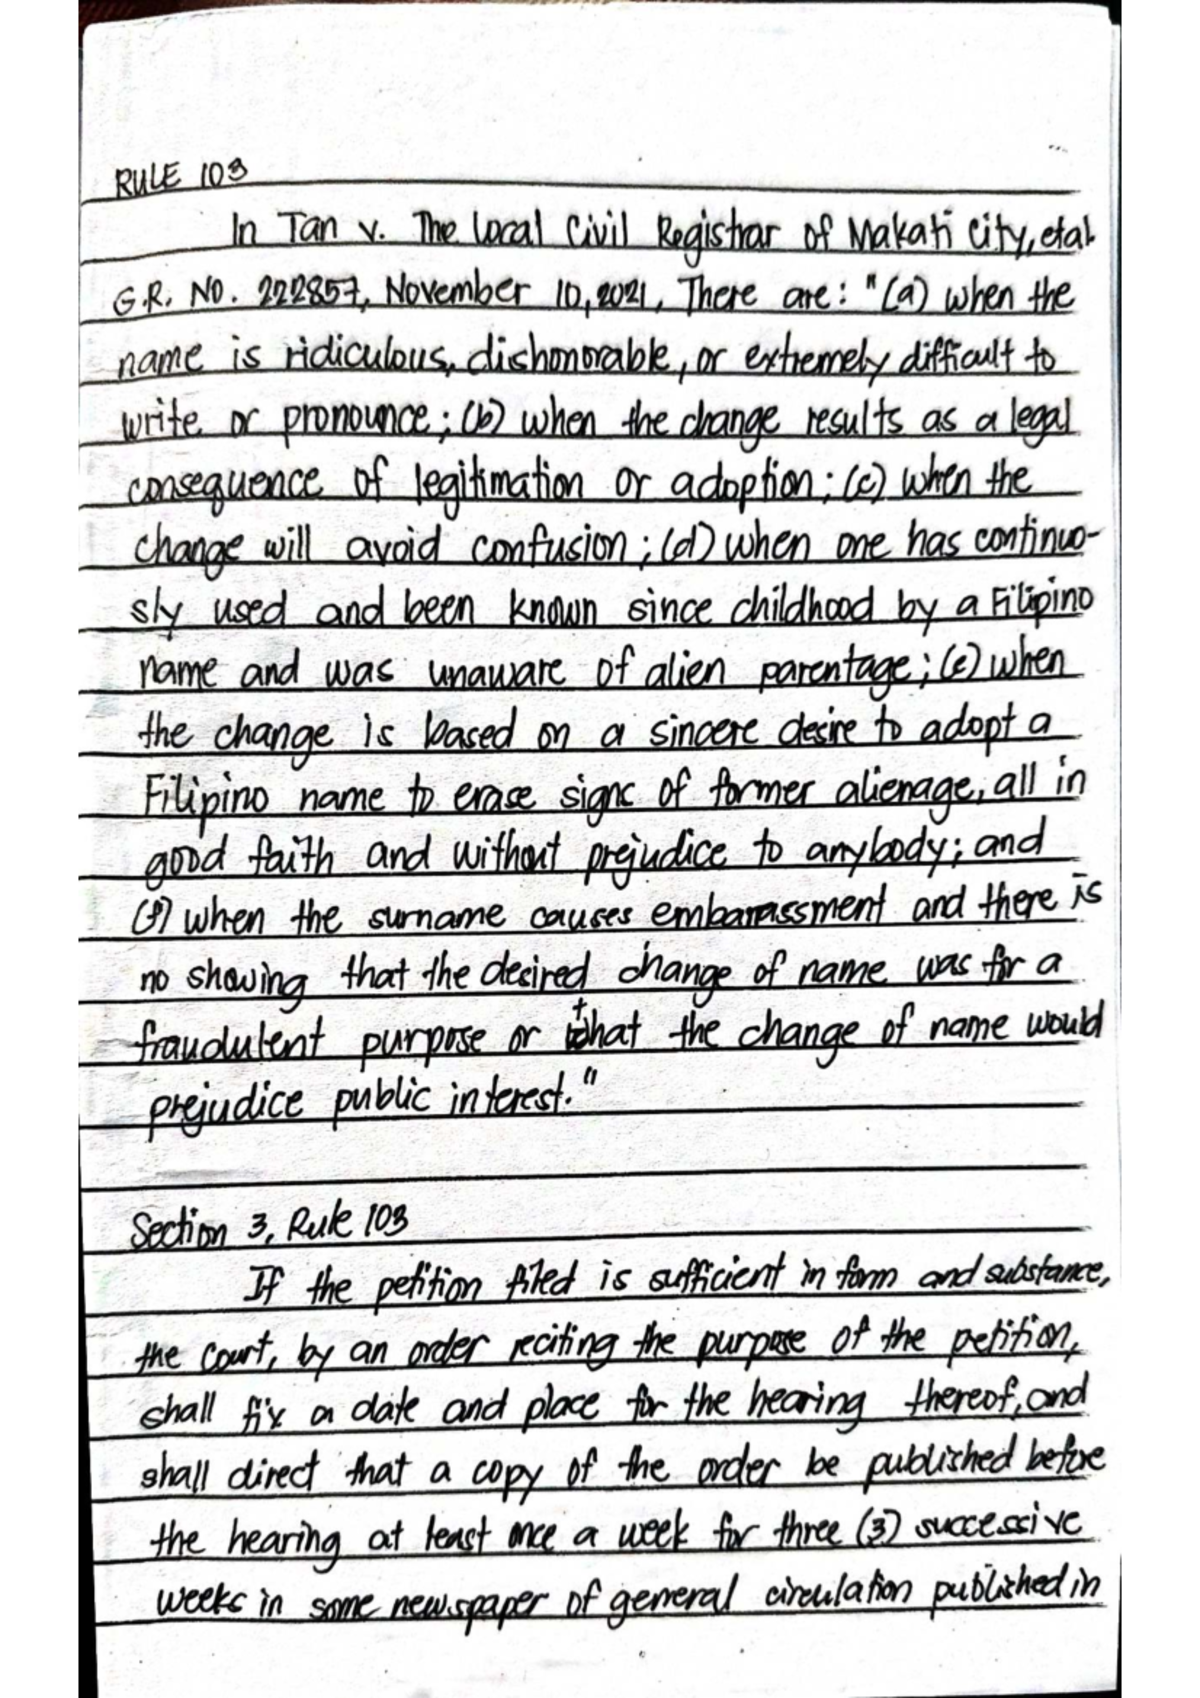 RULE 103
In Tan v. The Local Civil Registrar of Makati City, etal.
G.R. No. 222857, November 10, 2021, There are: "(a) when the
name is ridiculous, dishonorable, or extremely difficult to
write or pronounce; (b) when the change results as a legal
consequence of legitimation or adoption; (c) when the
change will avoid confusion; (d) when one has continuo-
sly used and been known since childhood by a Filipino
name and was unaware of alien parentage; (e) when
the change is based on a sincere desire to adopt a
Filipino name to erase signs of former alienage, all in
good faith and without prejudice to anybody; and
(f) when the surname causes embarassment and there is
no showing that the desired change of name was for a
fraudulent purpose or that the change of name would
prejudice public interest."
Section 3, Rule 103
If the petition filed is sufficient in form and substance,
the court, by an order reciting the purpose of the petition,
shall fix a date and place for the hearing thereof, and
shall direct that a copy of the order be published before
the hearing at least once a week for three (3) successive
weeks in some newspaper of general circulation published in